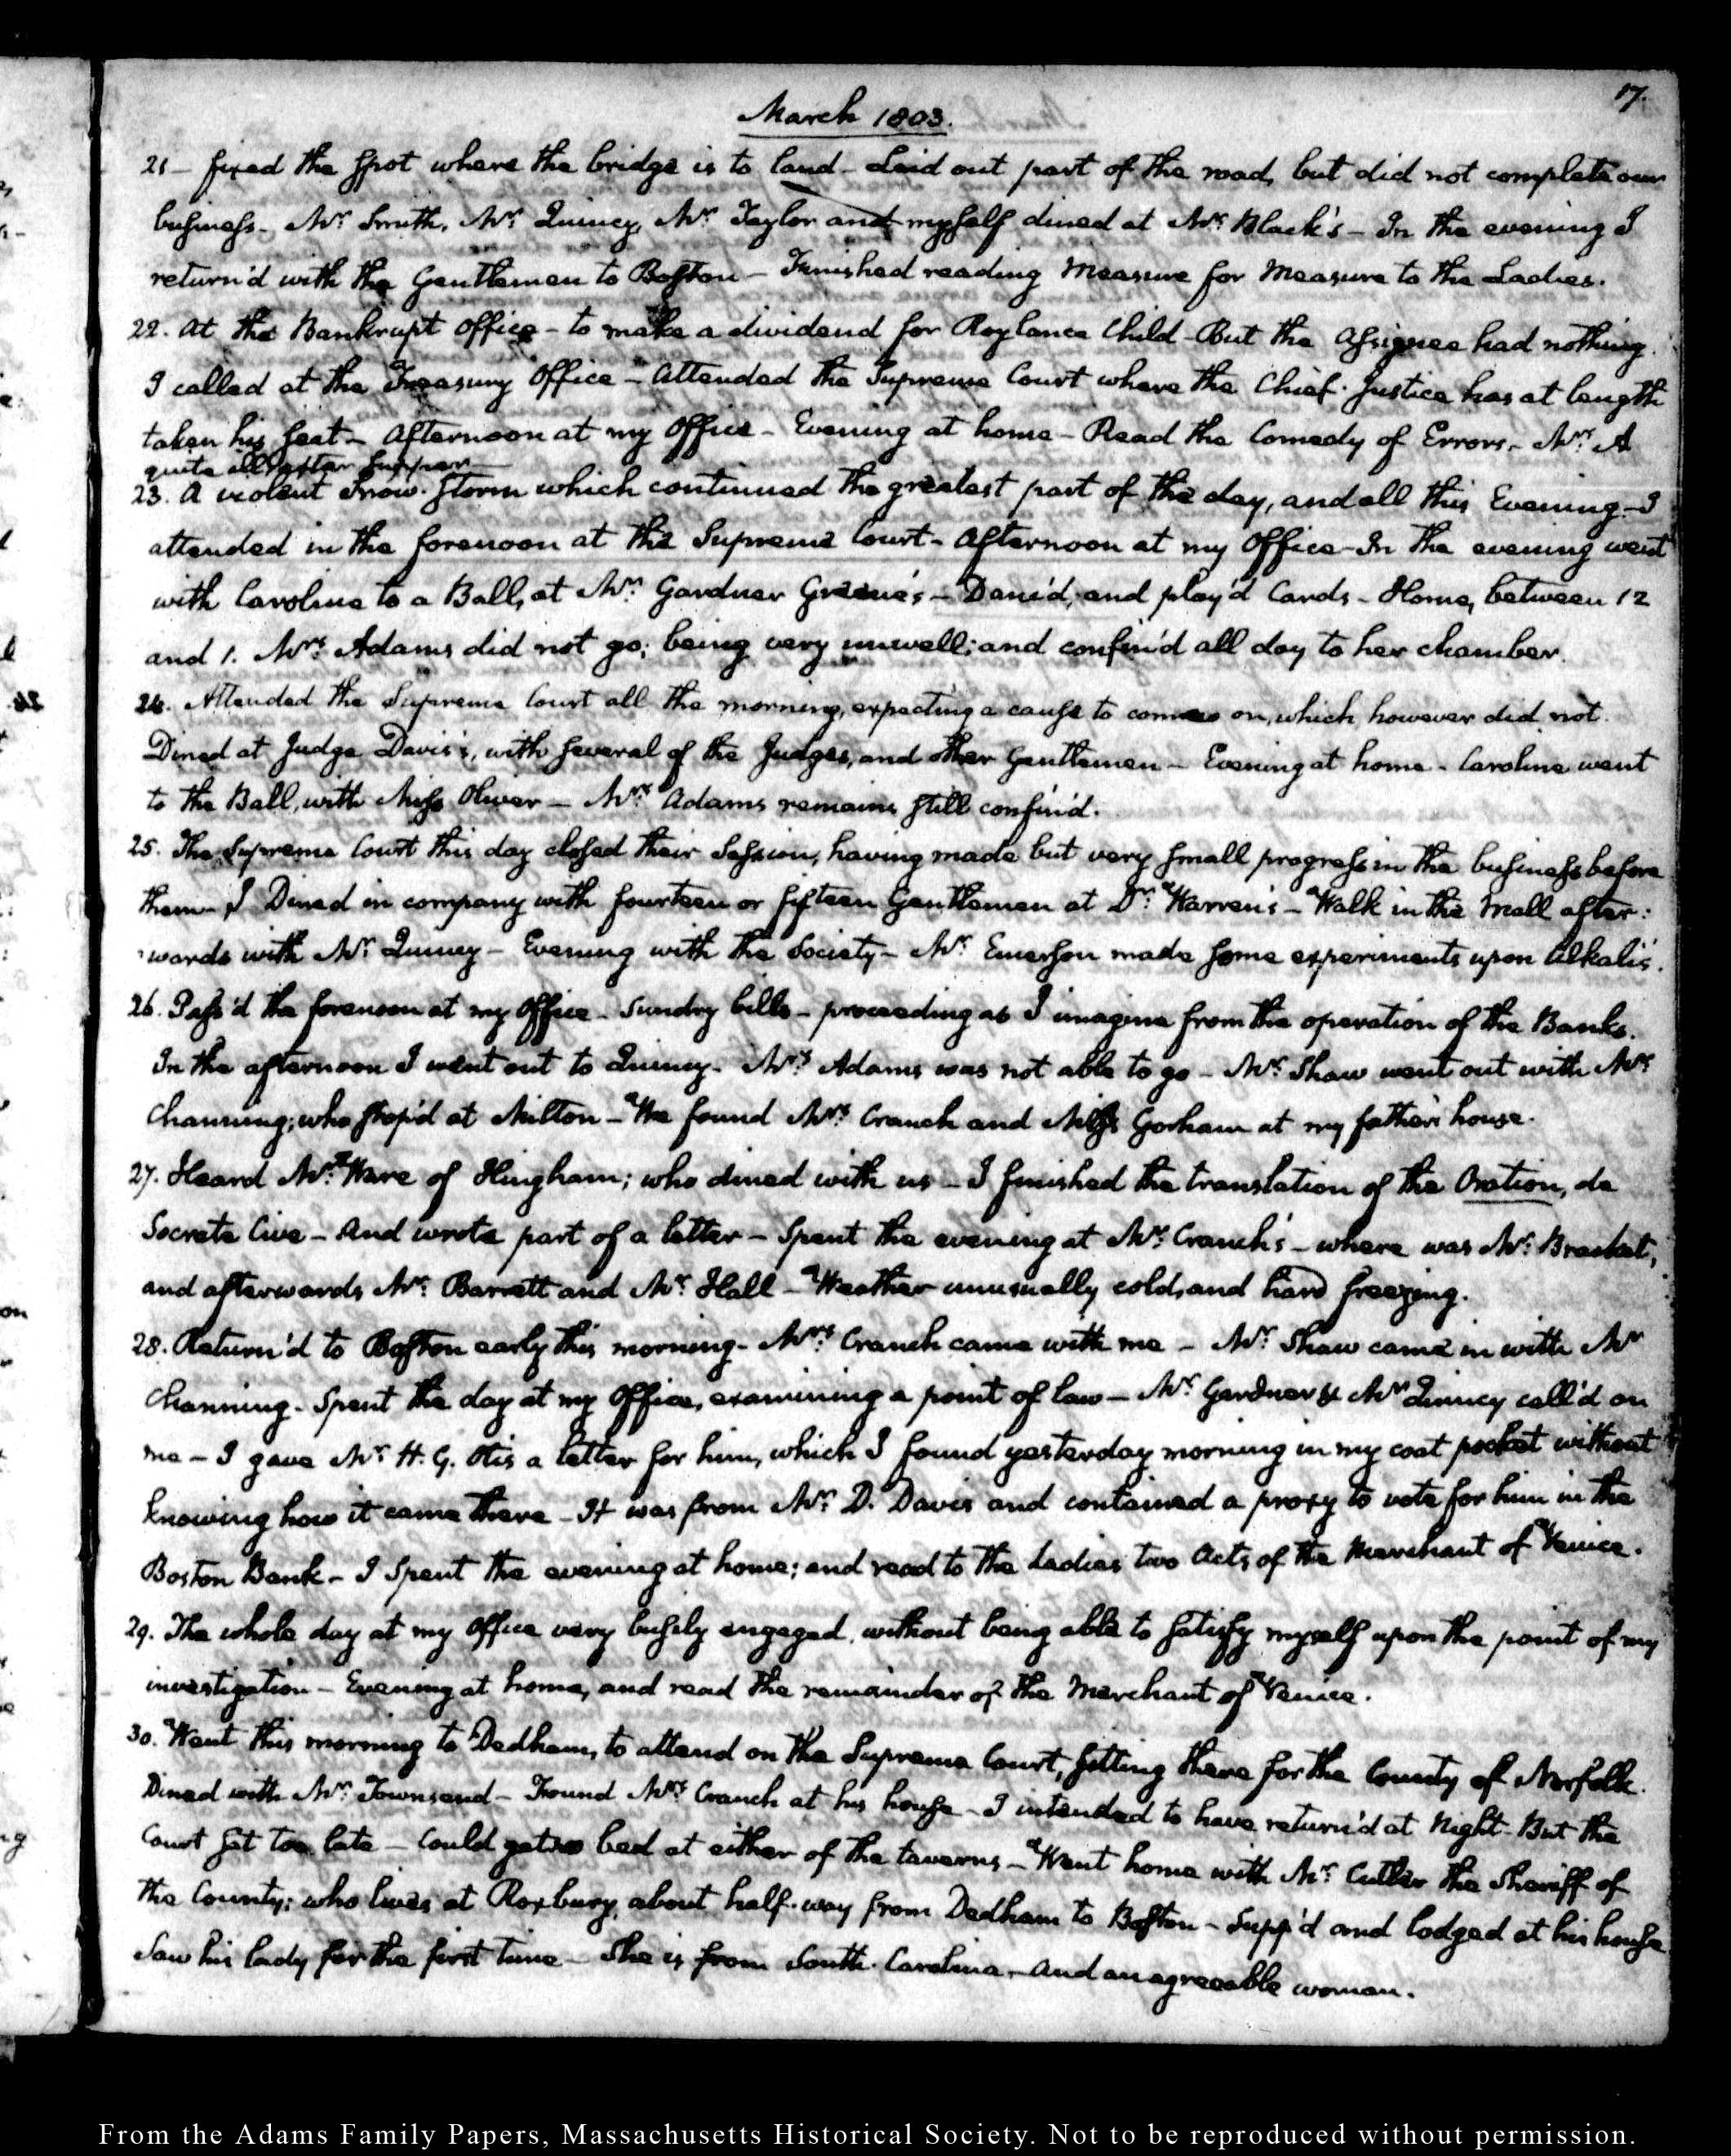 17.
March 1803.
21 – fixed the spot where the bridge is to land – Laid out part of the road, but did not complete our
business – Mr. Smith, Mr. Quincy, Mr. Taylor and myself dined at Mrs. Black's – In the evening I
return'd with the Gentlemen to Boston – Finished reading Measure for Measure to the Ladies.
22. At the Bankrupt Office – to make a dividend for Roylance Child – But the Assignee had nothing.
I called at the Treasury Office – Attended the Supreme Court where the Chief-Justice has at length
taken his seat – Afternoon at my Office – Evening at home – Read the Comedy of Errors – Mrs. A
quite ill after supper
23. A violent snow-storm which continued the greatest part of the day, and all this Evening – I
attended in the forenoon at the Supreme Court – Afternoon at my Office – In the evening went
with Caroline to a Ball, at Mr. Gardner Greene's – Danc'd, and play'd Cards – Home, between 12
and 1. Mrs. Adams did not go; being very unwell; and confin'd all day to her chamber.
24. Attended the Supreme Court all the morning, expecting a cause to come on, which however did not.
Dined at Judge Davis's, with several of the Judges, and other Gentlemen – Evening at home – Caroline went
to the Ball, with Miss Oliver – Mrs. Adams remains still confin'd.
25. The Supreme Court this day closed their Session, having made but very small progress in the business before
them – I Dined in company with fourteen or fifteen Gentlemen at Dr. Warren's – Walk in the Mall after:
wards with Mr. Quincy – Evening with the Society – Mr. Emerson made some experiments upon Alkalis.
26. Pass'd the forenoon at my Office – Sundry bills – proceeding as I imagine from the operation of the Banks.
In the afternoon I went out to Quincy – Mrs. Adams was not able to go – Mr. Shaw went out with Mr.
Channing; who stop'd at Milton – We found Mrs. Cranch and Miss Gorham at my father's house.
27. Heard Mr. Ware of Hingham; who dined with us – I finished the translation of the Oration, de
Socrate Cive – And wrote part of a letter – Spent the evening at Mr. Cranch's – where was Mr. Bracket,
and afterwards Mr. Barrett and Mr. Hall – Weather unusually cold, and hard freezing.
28. Return'd to Boston early this morning – Mrs. Cranch came with me – Mr. Shaw came in with Mr
Channing – Spent the day at my Office, examining a point of law – Mr. Gardner & Mr. Quincy call'd on
me – I gave Mr. H. G. Otis a letter for him, which I found yesterday morning in my coat pocket without
knowing how it came there – It was from Mr. D. Davis and contained a proxy to vote for him in the
Boston Bank – I Spent the evening at home; and read to the Ladies two Acts of the Merchant of Venice.
29. The whole day at my Office very busily engaged, without being able to satisfy myself upon the point of my
investigation – Evening at home, and read the remainder of the Merchant of Venice.
30. Went this morning to Dedham, to attend on the Supreme Court, sitting there for the County of Norfolk.
Dined with Mr. Townsend – Found Mrs. Cranch at his house – I intended to have return'd at Night – But the
Court sat too late – Could get no bed at either of the taverns – Went home with Mr. Cutler the Sheriff of
the County; who lives at Roxbury, about half-way from Dedham to Boston – Supp'd and lodged at his house
Saw his lady for the first time – She is from South-Carolina, and an agreeable woman.
From the Adams Family Papers, Massachusetts Historical Society. Not to be reproduced without permission.